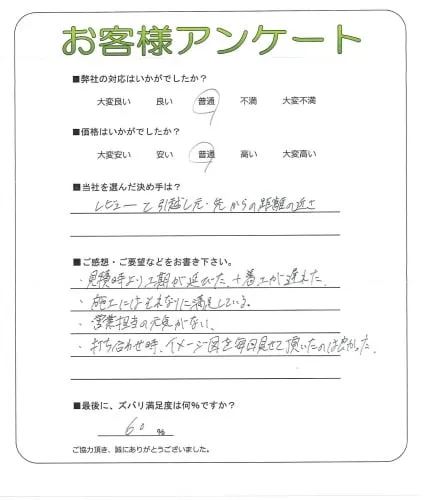 お客様アンケート
■弊社の対応はいかがでしたか?
大変良い 良い 普通 不満 大変不満
■価格はいかがでしたか?
大変安い 安い 普通 高い 大変高い
■当社を選んだ決め手は?
レビューと引越し元・先からの距離の近さ
■ご感想・ご要望などをお書き下さい。
・見積時より工期が延びた+着工が遅れた。
・施工にはそれなりに満足している。
・営業担当の元気がない。
・打ち合わせ時、イメージ図を毎回見せて頂いたのは良かった。
■最後に、ズバリ満足度は何%ですか?
60 %
ご協力頂き、誠にありがとうございました。